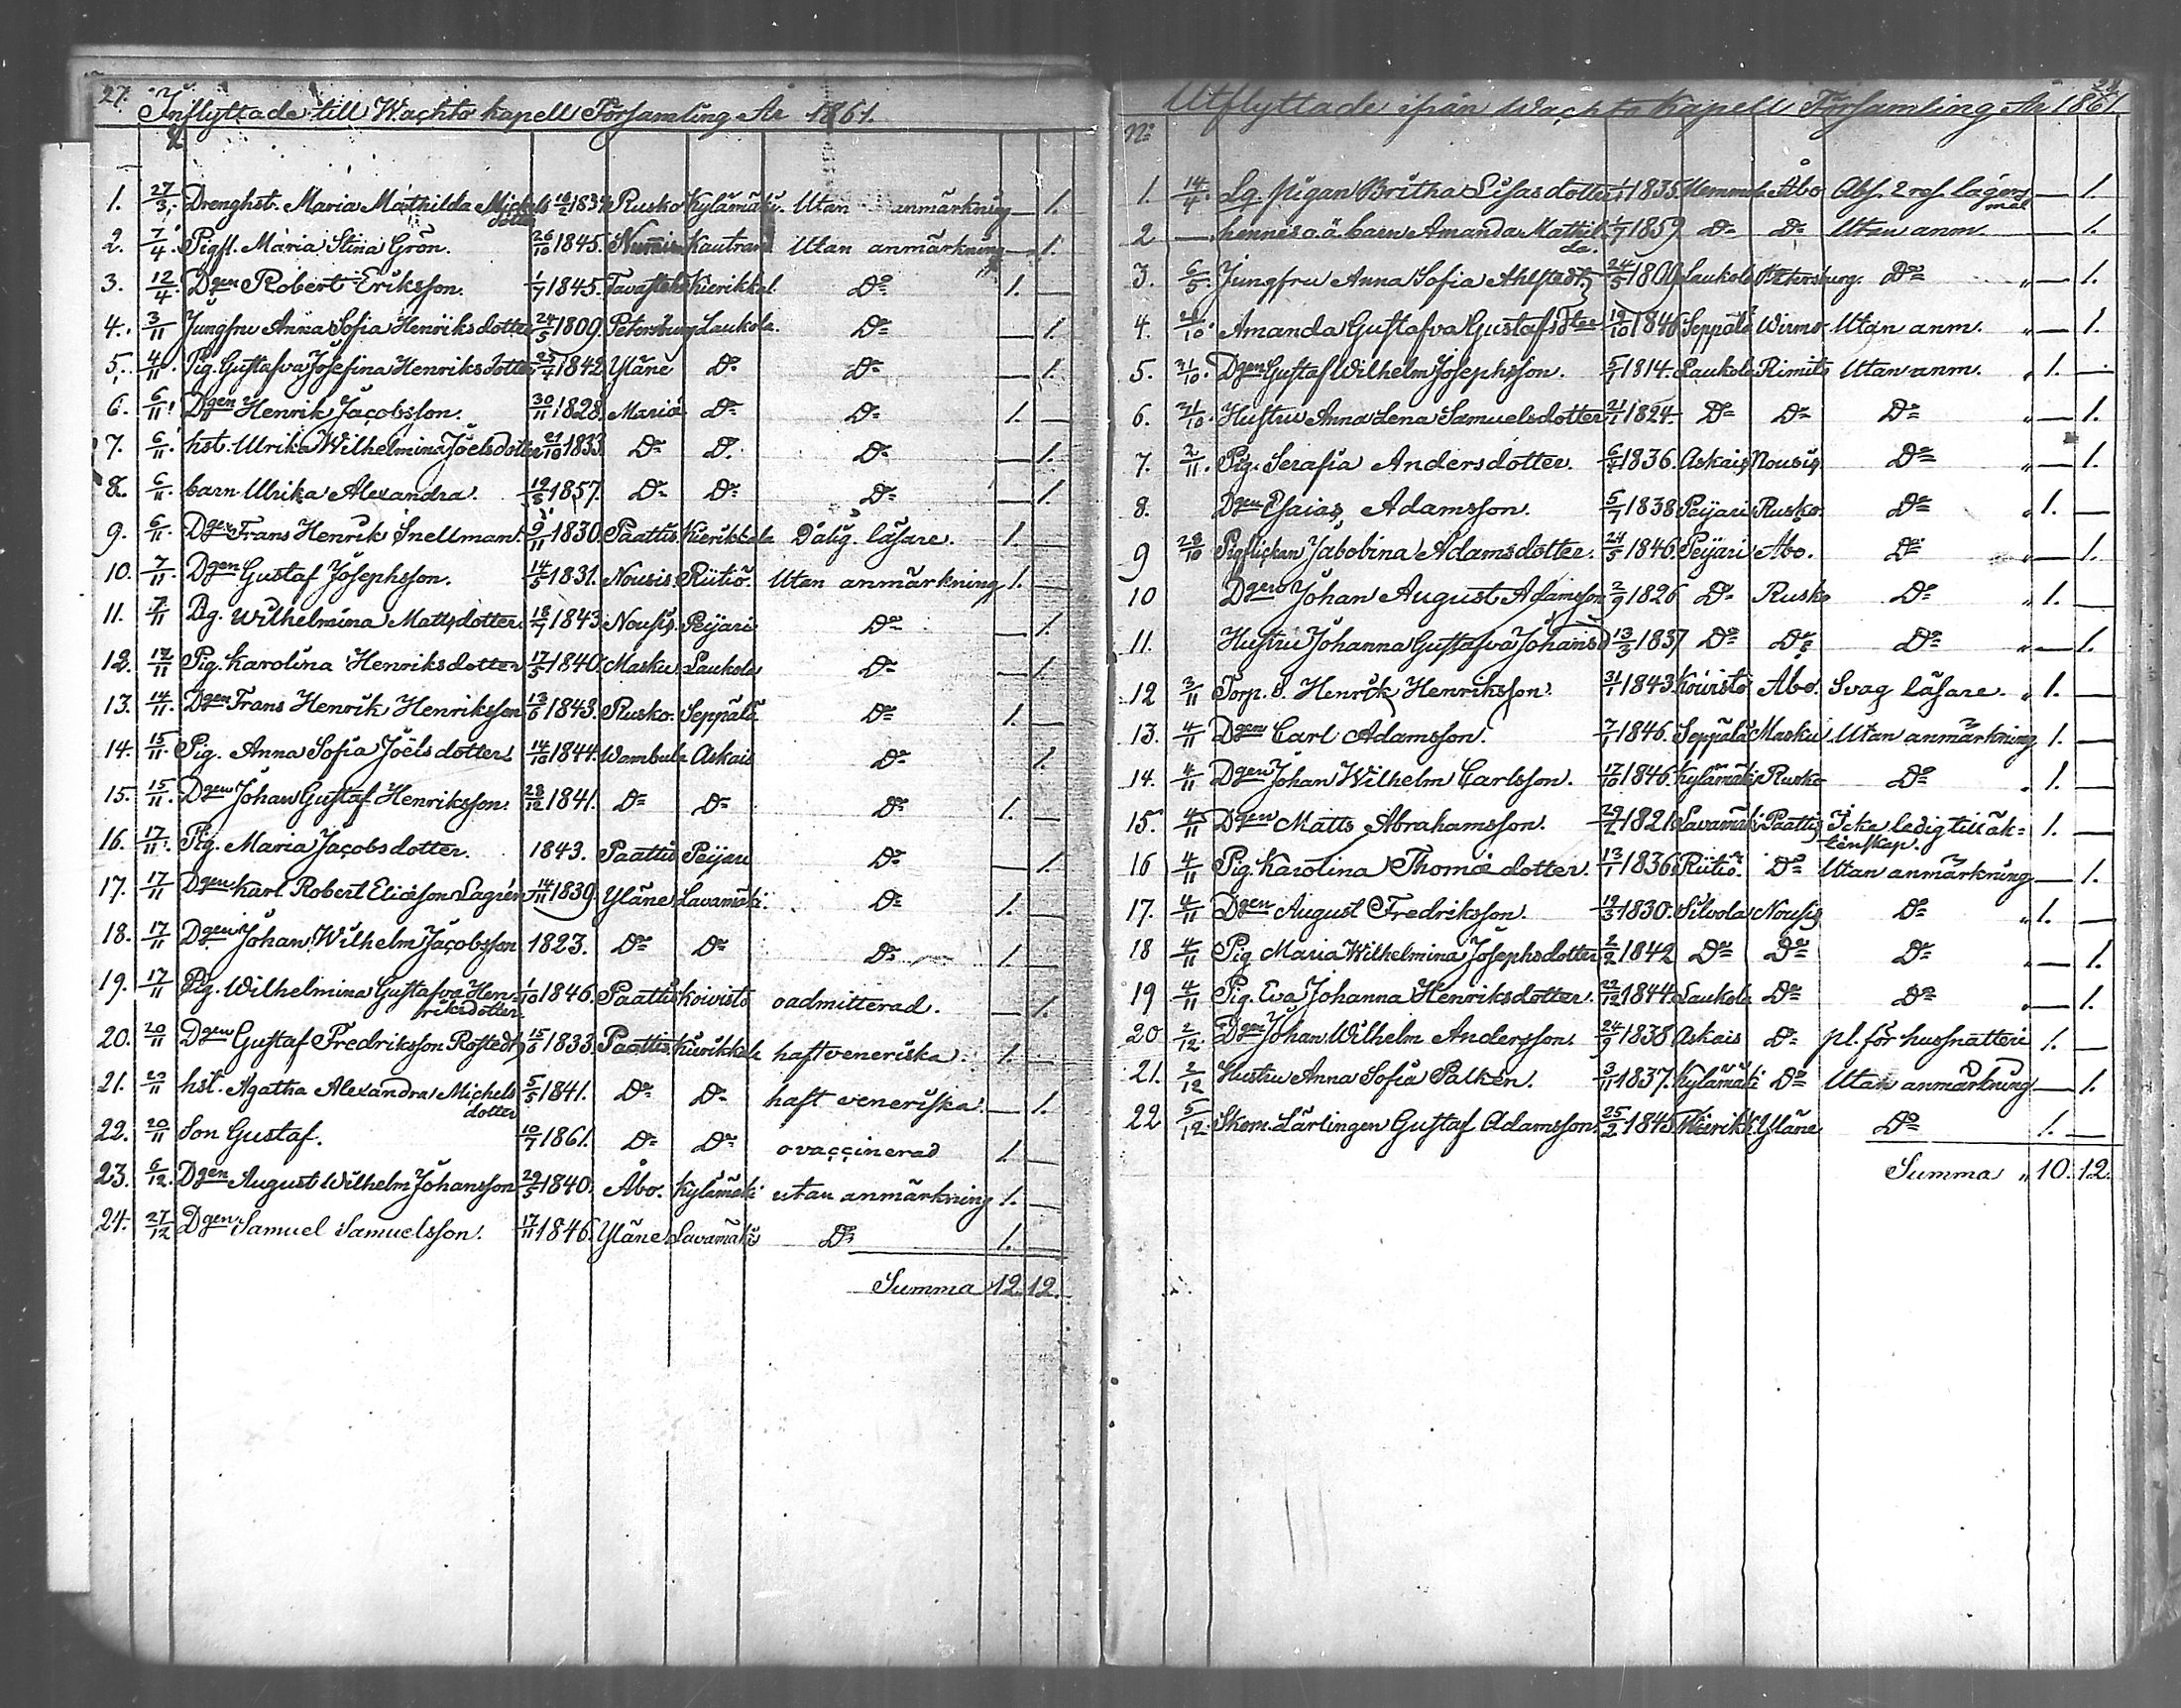 27. Inflyttade till Wachto kapell Församling År 1861.
1. 27/3. Drenghst. Maria Mathilda Michels 183 Rusko Kylämäki. Utan anmärkning — 1.
dotter
2. 7/4. Pigfl. Maria Stina Grön. 26/10 1845. Numis Utan anmärkning — 1.
3. 12/4. Dgen Robert Eriksson. 1/7 1845. Kierikkal. Do 1. —
4. 3/11 Jungfru Anna Sofia Henriksdotter 24/5 1809. Petersburg Laukola. Do — 1.
5. 4/11. Pig. Gustafva Josefina Henriksdotter 25/4 1842 Yläne Do Do — 1.
6. 6/11. Dgen Henrik Jacobsson. 30/11 1828. Mariæ Do Do 1. —
7. 6/11. hst. Ulrika Wilhelmina Joelsdotter 21/10 1833 Do Do Do — 1.
8. 6/11. barn Ulrika Alexandra. 19/5 1857. Do Do Do — 1.
9. 6/11. Dgen Frans Henrik Snellman. 9/11 1830. Paattis. Kierikkala Dålig läsare. 1. —
10. 7/11. Dgen Gustaf Josephsson. 14/5 1831. Nousis. Riitiö. Utan anmärkning 1. —
11. 7/11 Pig. Wilhelmina Mattsdotter. 18/7 1843. Nousis. Peijari Do — 1.
12. 12/11 Pig. Karolina Henriksdotter 17/5 1840. Masku Laukola Do — 1.
13. 14/11. Dgen Frans Henrik Henriksson 13/6 1843. Rusko. Seppälä Do 1. —
14. 15/11. Pig. Anna Sofia Joelsdotter 14/10 1844. Wambula Askais Do 1.
15. 15/11. Dgen Johan Gustaf Henriksson. 28/12 1841. Do Do Do 1. —
16. 17/11. Pig. Maria Jacobsdotter. 1843. Paattis Peijari Do — 1.
17. 17/11 Dgen Karl Robert Eliasson Lagrén 14/11 1839. Yläne Lavamäki. Do 1. —
18. 17/11 Dgen Johan Wilhelm Jacobsson 1823. Do Do Do 1. —
19. 17/11 Pig. Wilhelmina Gustafva Hen- 1/10 1846. Paattis Koivisto oadmitterad. — 1.
riksdotter.
20. 20/11 Dgen Gustaf Fredriksson Rostedt 15/6 1833. Paattis Kierikkala haft veneriska. 1. —
21. 20/11 hst. Agatha Alexandra Michels 5/5 1841. Do Do haft veneriska. — 1.
dotter
22. 20/11 Son Gustaf. 10/7 1861. Do Do ovaccinerad 1. —
23. 6/12. Dgen August Wilhelm Johansson 29/5 1840. Åbo. Kylämäki utan anmärkning 1. —
24. 27/12 Dgen Samuel Samuelsson. 17/11 1846. Yläne Lavamäki Do 1. —
Summa 12. 12.
28
Utflyttade ifrån Wachto Kapell Församling År 1861.
No
1. 14/4. Lg. pigan Britha Lisas dotter 1835. Åbo Abs. 2 rgr lägers — 1.
mål
2 — hennes oä barn Amanda Mathil 1/7 1859 Do Do Utan anm. — 1.
da.
3. 6/5. Jungfru Anna Sofia Ahlstedt. 24/5 1809 Laukola Petersburg. Do " — 1.
4. 10. Amanda Gustafva Gustafsdter 19/10 1846 Seppälä Wirmo Utan anm. " — 1.
5. 21/10. Dgen Gustaf Wilhelm Josephsson. 5/1 1814. Laukola Rimito Utan anm. " 1. —
6. 21/10. Hustru Anna Lena Samuelsdotter 21/7 1824. Do Do Do " — 1.
7. 2/11. Pig. Serafia Andersdotter. 1836. Askais Nousis Do " — 1.
8. Dgen Esaias Adamsson. 5/7 1838 Peijari Rusko. Do " 1. —
9 28/10 Pigflickan Jakobina Adamsdotter. 24/5 1846. Peijari Åbo. Do " — 1.
10 Dgen Johan August Adamsson 2/9 1826 Do Rusko Do " 1. —
11. Hustru Johanna Gustafva Johansd 13/3 1837 Do Do Do " — 1.
12 3/11 Torp. s. Henrik Henriksson. 31/1 1843. Koivisto Åbo. Svag läsare. " 1. —
13. 4/11 Dgen Carl Adamsson. 7/1 1846. Seppälä Masku Utan anmärkning 1. —
14. 4/11 Dgen Johan Wilhelm Carlsson. 17/10 1846. Kylämäki Rusko Do " 1. —
15. 4/11 Dgen Matts Abrahamsson. 29/2 1821. Lavamäki Paattis Icke ledig till äk- 1. —
tenskap.
16 4/11 Pig. Karolina Thomædotter. 13/1 1836. Riitiö. Do Utan anmärkning — 1.
17. 4/11 Dgen August Fredriksson. 19/3 1830. Silvola Nousis Do " 1. —
18 4/11 Pig Maria Wilhelmina Josephsdotter 2/2 1842 Do Do Do " — 1.
19 4/11 Pig. Eva Johanna Henriksdotter. 22/12 1844. Laukola Do Do " — 1.
20 2/12. Dgen Johan Wilhelm Andersson. 24/9 1838 Askais Do pl. för hussnatteri 1. —
21. 2/12 Hustru Anna Sofia Palkén. 3/11 1837. Kylämäki Do Utan anmärkning — 1.
22 5/12. Skom. Lärlingen Gustaf Adamsson. 25/2 1845 Kierikk. Yläne Do 1. —
Summa " 10. 12.